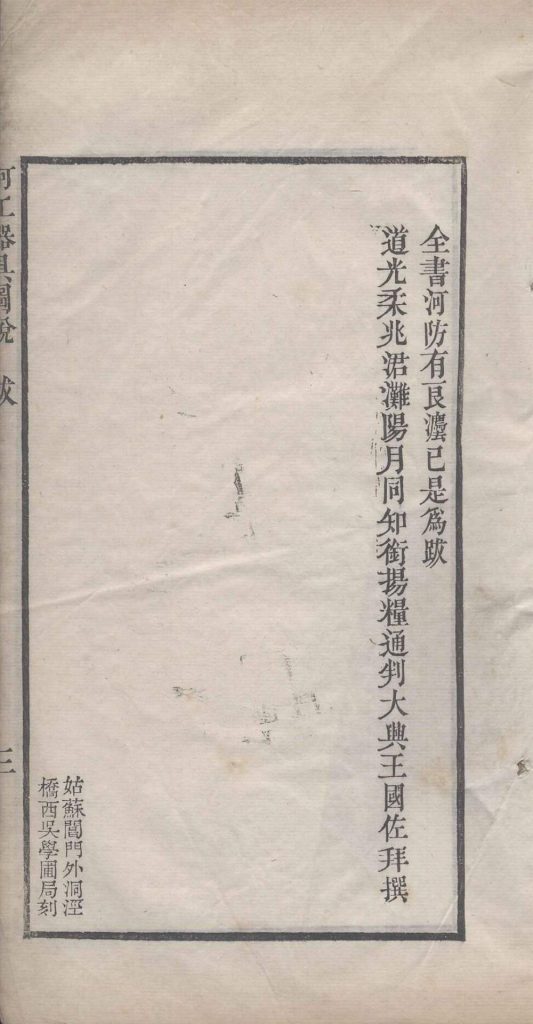 全書河防有良灋已是爲跋
道光柔兆涒灘陽月同知銜揚糧通判大興王國佐拜撰
姑蘇閶門外洞涇
橋西吳學圃局刻
河工器具圖說 跋 三